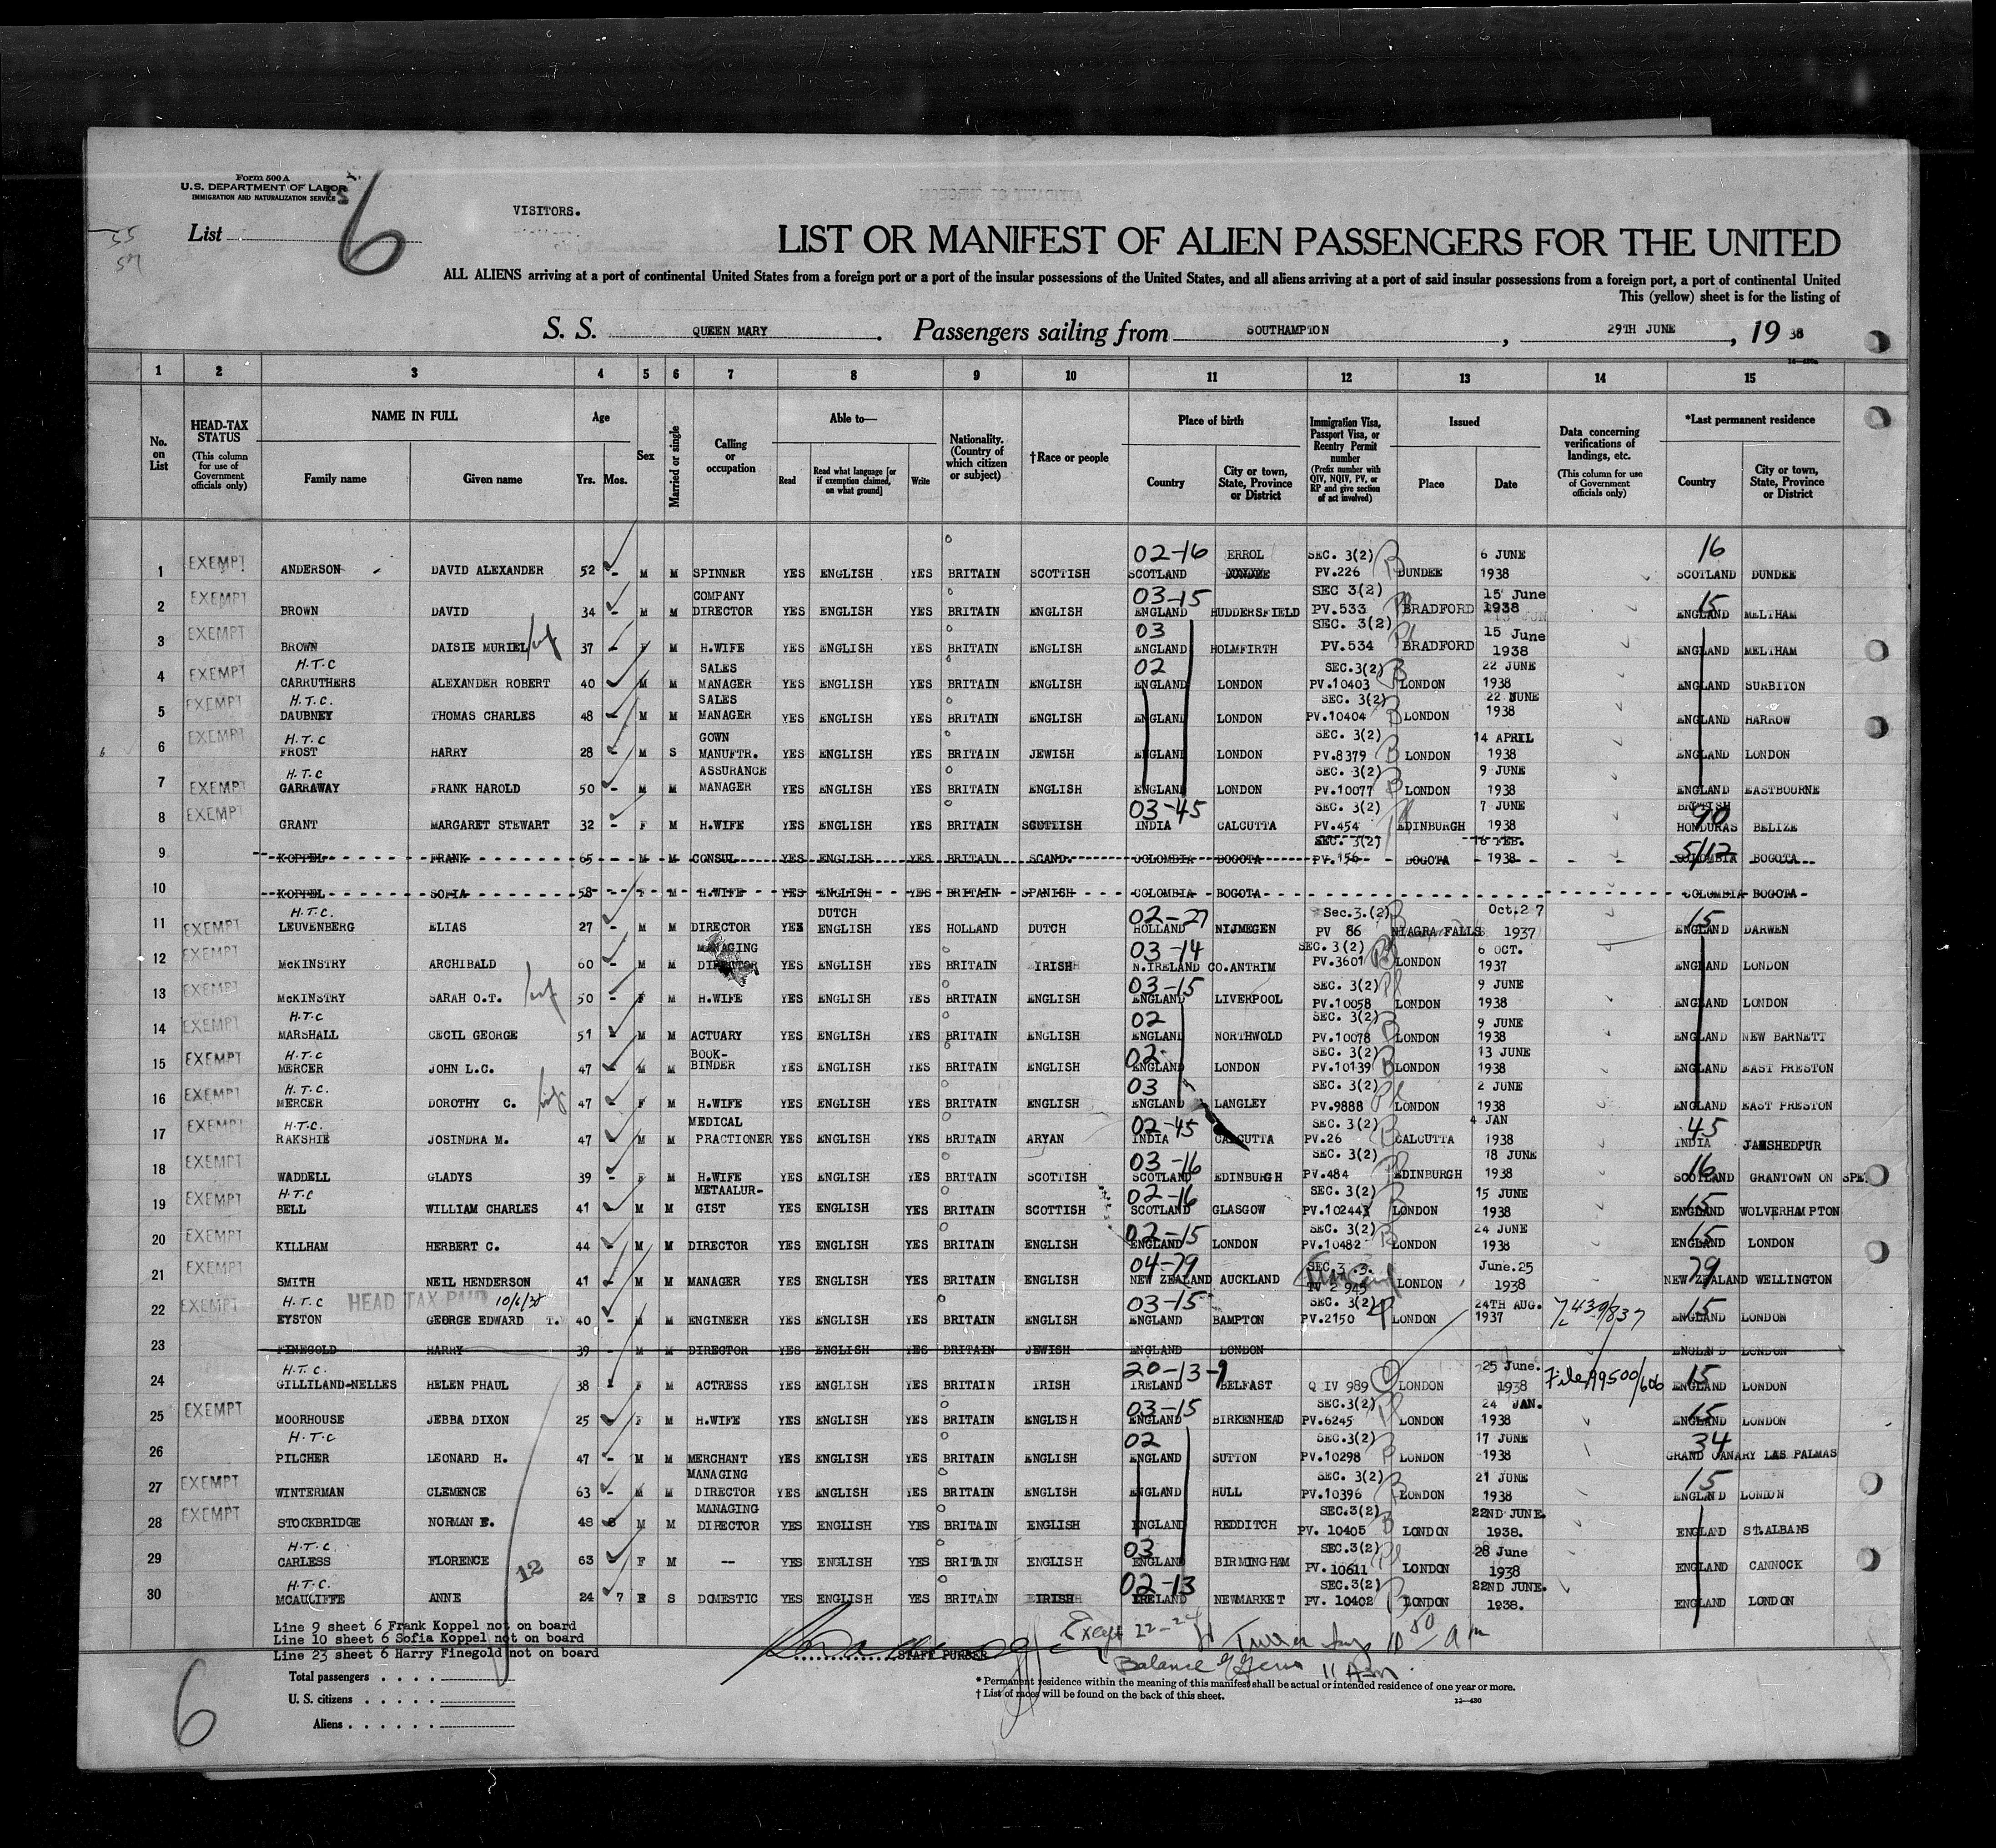 Form 500 A
U.S. DEPARTMENT OF LABOR
IMMIGRATION AND NATURALIZATION SERVICE
List 6
VISITORS.
LIST OR MANIFEST OF ALIEN PASSENGERS FOR THE UNITED
ALL ALIENS arriving at a port of continental United States from a foreign port or a port of the insular possessions of the United States, and all aliens arriving at a port of said insular possessions from a foreign port, a port of continental United
This (yellow) sheet is for the listing of
S. S. QUEEN MARY. Passengers sailing from SOUTHAMPTON, 29TH JUNE, 19 38
1 2 3 4 5 6 7 8 9 10 11 12 13 14 15
No. on List
HEAD-TAX STATUS (This column for use of Government officials only)
NAME IN FULL Family name Given name
Age Yrs. Mos.
Sex
Married or single
Calling or occupation
Able to— Read Read what language [or if exemption claimed, on what ground] Write
Nationality. (Country of which citizen or subject)
†Race or people
Place of birth Country City or town, State, Province or District
Immigration Visa, Passport Visa, or Reentry Permit number (Prefix number with QIV, NQIV, PV, or RP and give section of act involved)
Issued Place Date
Data concerning verifications of landings, etc. (This column for use of Government officials only)
*Last permanent residence Country City or town, State, Province or District
1 EXEMPT ANDERSON DAVID ALEXANDER 52 - M M SPINNER YES ENGLISH YES BRITAIN SCOTTISH 02-16 SCOTLAND ERROL DUNDEE SEC. 3(2) PV.226 DUNDEE 6 JUNE 1938 16 SCOTLAND DUNDEE
2 EXEMPT BROWN DAVID 34 - M M COMPANY DIRECTOR YES ENGLISH YES BRITAIN ENGLISH 03-15 ENGLAND HUDDERSFIELD SEC 3(2) PV.533 BRADFORD 15 June 1938 15 ENGLAND MELTHAM
3 EXEMPT BROWN DAISIE MURIEL 37 - F M H.WIFE YES ENGLISH YES BRITAIN ENGLISH 03 ENGLAND HOLMFIRTH SEC. 3(2) PV.534 BRADFORD 15 June 1938 ENGLAND MELTHAM
4 EXEMPT H.T.C CARRUTHERS ALEXANDER ROBERT 40 M M SALES MANAGER YES ENGLISH YES BRITAIN ENGLISH 02 ENGLAND LONDON SEC.3(2) PV.10403 LONDON 22 JUNE 1938 ENGLAND SURBITON
5 EXEMPT H.T.C. DAUBNEY THOMAS CHARLES 48 - M M SALES MANAGER YES ENGLISH YES BRITAIN ENGLISH ENGLAND LONDON SEC. 3(2) PV.10404 LONDON 22 JUNE 1938 ENGLAND HARROW
6 EXEMPT H.T.C FROST HARRY 28 - M S GOWN MANUFTR. YES ENGLISH YES BRITAIN JEWISH ENGLAND LONDON SEC. 3(2) PV.8379 LONDON 14 APRIL 1938 ENGLAND LONDON
7 EXEMPT H.T.C GARRAWAY FRANK HAROLD 50 - M M ASSURANCE MANAGER YES ENGLISH YES BRITAIN ENGLISH ENGLAND LONDON SEC. 3(2) PV.10077 LONDON 9 JUNE 1938 ENGLAND EASTBOURNE
8 EXEMPT GRANT MARGARET STEWART 32 - F M H.WIFE YES ENGLISH YES BRITAIN SCOTTISH 03-45 INDIA CALCUTTA SEC. 3(2) PV.454 EDINBURGH 7 JUNE 1938 90 BRITISH HONDURAS BELIZE
9 KOPPEL FRANK 65 - M M CONSUL YES ENGLISH YES BRITAIN SCAND. COLOMBIA BOGOTA SEC. 3(2) PV.156 BOGOTA 16 FEB. 1938 5/12 COLOMBIA BOGOTA
10 KOPPEL SOFIA 58 - F M H.WIFE YES ENGLISH YES BRITAIN SPANISH COLOMBIA BOGOTA COLOMBIA BOGOTA
11 EXEMPT H.T.C. LEUVENBERG ELIAS 27 - M M DIRECTOR YES DUTCH ENGLISH YES HOLLAND DUTCH 02-27 HOLLAND NIJMEGEN Sec.3.(2) PV 86 NIAGRA FALLS Oct.27 1937 15 ENGLAND DARWEN
12 EXEMPT McKINSTRY ARCHIBALD 60 - M M MANAGING DIRECTOR YES ENGLISH YES BRITAIN IRISH 03-14 N.IRELAND CO.ANTRIM SEC. 3(2) PV.3601 LONDON 6 OCT. 1937 ENGLAND LONDON
13 EXEMPT McKINSTRY SARAH O.T. 50 - F M H.WIFE YES ENGLISH YES BRITAIN ENGLISH 03-15 ENGLAND LIVERPOOL SEC. 3(2) PV.10058 LONDON 9 JUNE 1938 ENGLAND LONDON
14 EXEMPT H.T.C MARSHALL CECIL GEORGE 51 M M ACTUARY YES ENGLISH YES BRITAIN ENGLISH 02 ENGLAND NORTHWOLD SEC. 3(2) PV.10078 LONDON 9 JUNE 1938 ENGLAND NEW BARNETT
15 EXEMPT H.T.C MERCER JOHN L.C. 47 - M M BOOK-BINDER YES ENGLISH YES BRITAIN ENGLISH 02 ENGLAND LONDON SEC. 3(2) PV.10139 LONDON 13 JUNE 1938 ENGLAND EAST PRESTON
16 EXEMPT H.T.C. MERCER DOROTHY C. 47 - F M H.WIFE YES ENGLISH YES BRITAIN ENGLISH 03 ENGLAND LANGLEY SEC. 3(2) PV.9888 LONDON 2 JUNE 1938 ENGLAND EAST PRESTON
17 EXEMPT H.T.C. RAKSHIE JOSINDRA M. 47 M M MEDICAL PRACTIONER YES ENGLISH YES BRITAIN ARYAN 02-45 INDIA CALCUTTA SEC. 3(2) PV.26 CALCUTTA 4 JAN 1938 45 INDIA JAMSHEDPUR
18 EXEMPT WADDELL GLADYS 39 - F M H.WIFE YES ENGLISH YES BRITAIN SCOTTISH 03-16 SCOTLAND EDINBURGH SEC. 3(2) PV.484 EDINBURGH 18 JUNE 1938 16 SCOTLAND GRANTOWN ON SPE
19 EXEMPT H.T.C BELL WILLIAM CHARLES 41 M M METAALUR-GIST YES ENGLISH YES BRITAIN SCOTTISH 02-16 SCOTLAND GLASGOW SEC. 3(2) PV.10244 LONDON 15 JUNE 1938 15 ENGLAND WOLVERHAMPTON
20 EXEMPT KILLHAM HERBERT C. 44 - M M DIRECTOR YES ENGLISH YES BRITAIN ENGLISH 02-15 ENGLAND LONDON SEC. 3(2) PV.10482 LONDON 24 JUNE 1938 15 ENGLAND LONDON
21 EXEMPT SMITH NEIL HENDERSON 41 - M M MANAGER YES ENGLISH YES BRITAIN ENGLISH 04-79 NEW ZEALAND AUCKLAND SEC.3.3. TV 2 945 LONDON June.25 1938 79 NEW ZEALAND WELLINGTON
22 EXEMPT H.T.C HEAD TAX PAID 10/6/38 EYSTON GEORGE EDWARD T. 40 - M M ENGINEER YES ENGLISH YES BRITAIN ENGLISH 03-15 ENGLAND BAMPTON SEC. 3(2) PV.2150 LONDON 24TH AUG. 1937 7-439/837 15 ENGLAND LONDON
23 FINEGOLD HARRY 39 - M M DIRECTOR YES ENGLISH YES BRITAIN JEWISH ENGLAND LONDON ENGLAND LONDON
24 H.T.C. GILLILAND-NELLES HELEN PHAUL 38 F M ACTRESS YES ENGLISH YES BRITAIN IRISH 20-13-9 IRELAND BELFAST Q IV 989 LONDON 25 June. 1938 File 99500/606 15 ENGLAND LONDON
25 EXEMPT MOORHOUSE JEBBA DIXON 25 F M H.WIFE YES ENGLISH YES BRITAIN ENGLISH 03-15 ENGLAND BIRKENHEAD SEC.3(2) PV.6245 LONDON 24 JAN. 1938 15 ENGLAND LONDON
26 H.T.C PILCHER LEONARD H. 47 - M M MERCHANT YES ENGLISH YES BRITAIN ENGLISH 02 ENGLAND SUTTON SEC.3(2) PV.10298 LONDON 17 JUNE 1938 34 GRAND CANARY LAS PALMAS
27 EXEMPT WINTERMAN CLEMENCE 63 - M M MANAGING DIRECTOR YES ENGLISH YES BRITAIN ENGLISH ENGLAND HULL SEC. 3(2) PV.10396 LONDON 21 JUNE 1938 15 ENGLAND LONDON
28 EXEMPT STOCKBRIDGE NORMAN E. 48 M M MANAGING DIRECTOR YES ENGLISH YES BRITAIN ENGLISH ENGLAND REDDITCH SEC.3(2) PV. 10405 LONDON 22ND JUNE. 1938. ENGLAND ST.ALBANS
29 H.T.C. CARLESS FLORENCE 63 F M -- YES ENGLISH YES BRITAIN ENGLISH 03 ENGLAND BIRMINGHAM SEC.3(2) PV.10611 LONDON 28 June 1938 ENGLAND CANNOCK
30 H.T.C. MCAULIFFE ANNE 24 7 F S DOMESTIC YES ENGLISH YES BRITAIN IRISH 02-13 IRELAND NEWMARKET SEC.3(2) PV. 10402 LONDON 22ND JUNE. 1938. ENGLAND LONDON
12
Line 9 sheet 6 Frank Koppel not on board
Line 10 sheet 6 Sofia Koppel not on board
Line 23 sheet 6 Harry Finegold not on board
STAFF PURSER
Except 22-24 10 50 am
Balance 11 A-m.
Total passengers
U. S. citizens
Aliens
* Permanent residence within the meaning of this manifest shall be actual or intended residence of one year or more.
† List of races will be found on the back of this sheet.
6